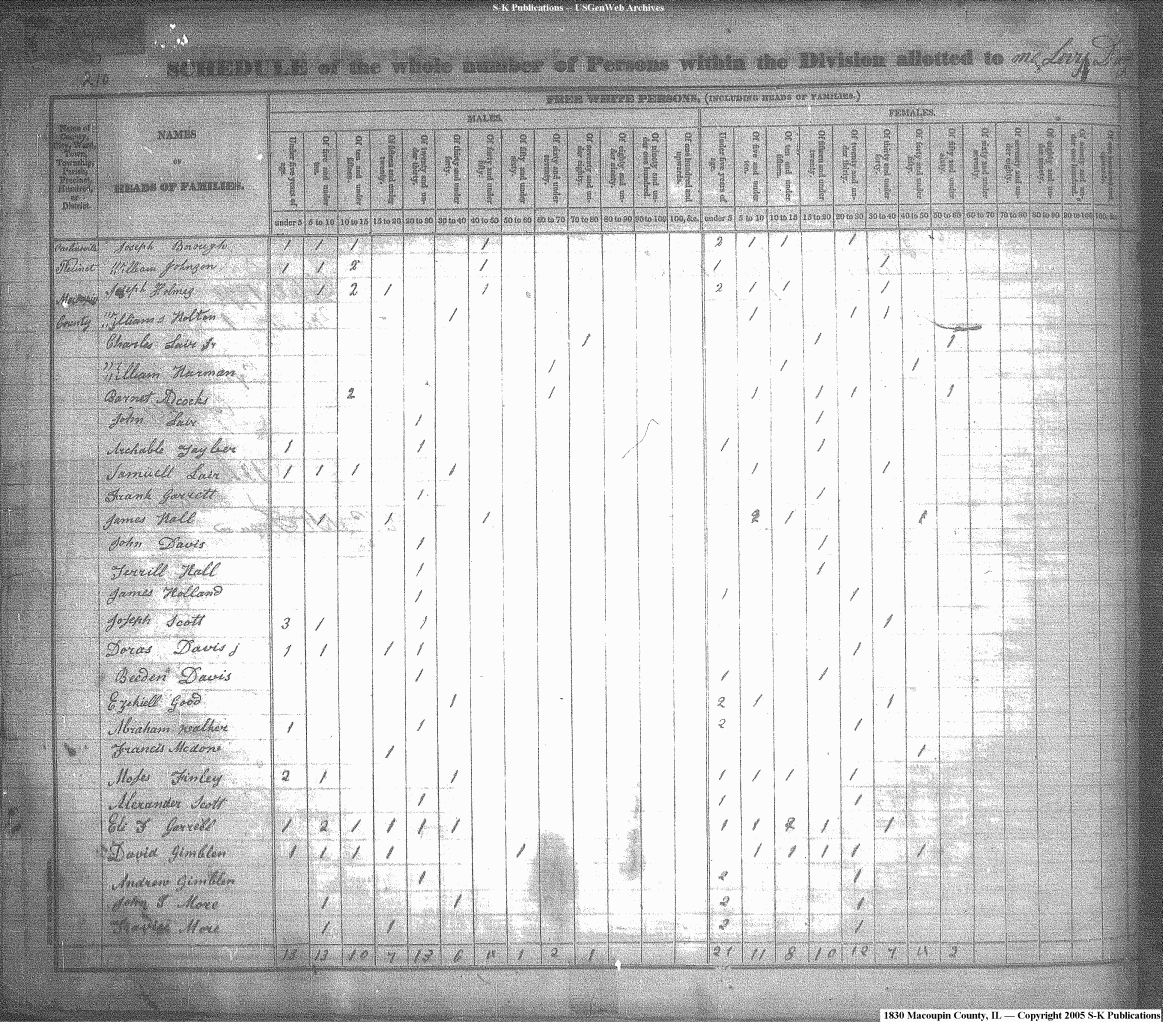 S-K Publications -- USGenWeb Archives
210
SCHEDULE of the whole number of Persons within the Division allotted to
FREE WHITE PERSONS, (INCLUDING HEADS OF FAMILIES.)
MALES. FEMALES.
Name of County, City, Ward, Town, Township, Parish, Precinct, Hundred, or District.
NAMES
OF
HEADS OF FAMILIES.
Under five years of age. Of five and under ten. Of ten and under fifteen. Of fifteen and under twenty. Of twenty and under thirty. Of thirty and under forty. Of forty and under fifty. Of fifty and under sixty. Of sixty and under seventy. Of seventy and under eighty. Of eighty and under ninety. Of ninety and under one hundred. Of one hundred and upwards. Under five years of age. Of five and under ten. Of ten and under fifteen. Of fifteen and under twenty. Of twenty and under thirty. Of thirty and under forty. Of forty and under fifty. Of fifty and under sixty. Of sixty and under seventy. Of seventy and under eighty. Of eighty and under ninety. Of ninety and under one hundred. Of one hundred and upwards.
under 5 5 to 10 10 to 15 15 to 20 20 to 30 30 to 40 40 to 50 50 to 60 60 to 70 70 to 80 80 to 90 90 to 100 100, &c. under 5 5 to 10 10 to 15 15 to 20 20 to 30 30 to 40 40 to 50 50 to 60 60 to 70 70 to 80 80 to 90 90 to 100 100, &c.
Joseph Borough 1 1 1 1 2 1 1 1
Precinct William Johnson 1 1 2 1 1 1
Joseph Holmes 1 2 1 1 2 1 1 1
County William Holton 1 1 1 1
Charles Lair Jr 1 1 1
William Harman 1 1 1
Barnet Adcocks 2 1 1 1 1 1
John Lair 1 1
Archable Taylor 1 1 1 1
Samuell Lair 1 1 1 1 1 1
Frank Garrett 1 1
James Hall 1 1 1 2 1 1
John Davis 1 1
Terrill Hall 1 1
James Holland 1 1 1
Joseph Scott 3 1 1 1
Doras Davis j 1 1 1 1 1
Beeden Davis 1 1 1
Ezekiell Good 1 2 1 1
Abraham Walker 1 1 2 1
Francis Mcdone 1 1
Moses Finley 2 1 1 1 1 1 1
Alexander Scott 1 1 1
Eli F Garrell 1 2 1 1 1 1 1 1 2 1 1
David Gimblen 1 1 1 1 1 1 1 1 1 1
Andrew Gimblen 1 2 1
John T More 1 1 2 1
Travise More 1 1 2 1
13 13 10 7 13 6 4 1 2 1 21 11 8 10 12 7 4 2
1830 Macoupin County, IL — Copyright 2005 S-K Publications